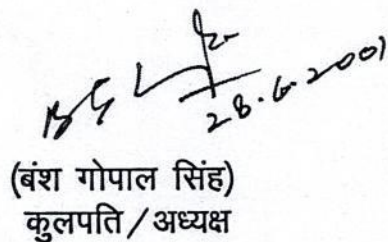 28.6.2001
(बंश गोपाल सिंह)
कुलपति / अध्यक्ष